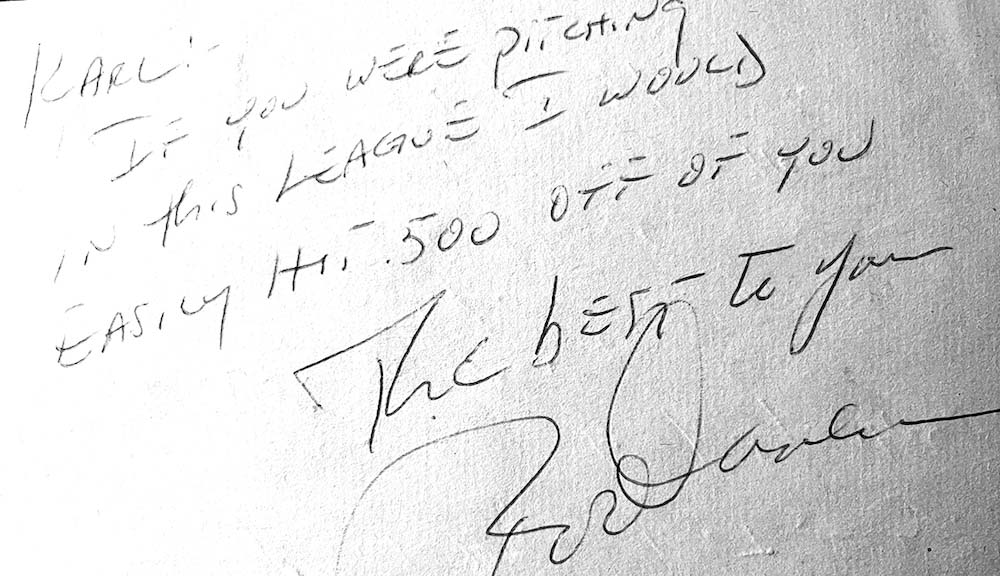 KARL:-
IF YOU WERE PITCHING
IN this LEAGUE I WOULD
EASILY HIT .500 OFF OF YOU
The bEST to you